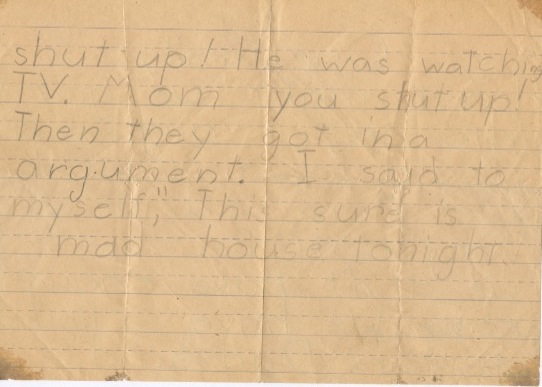 shut up! He was watching
TV. Mom you shut up!
Then they got in a
argument. I said to
myself," This sure is
mad house tonight.